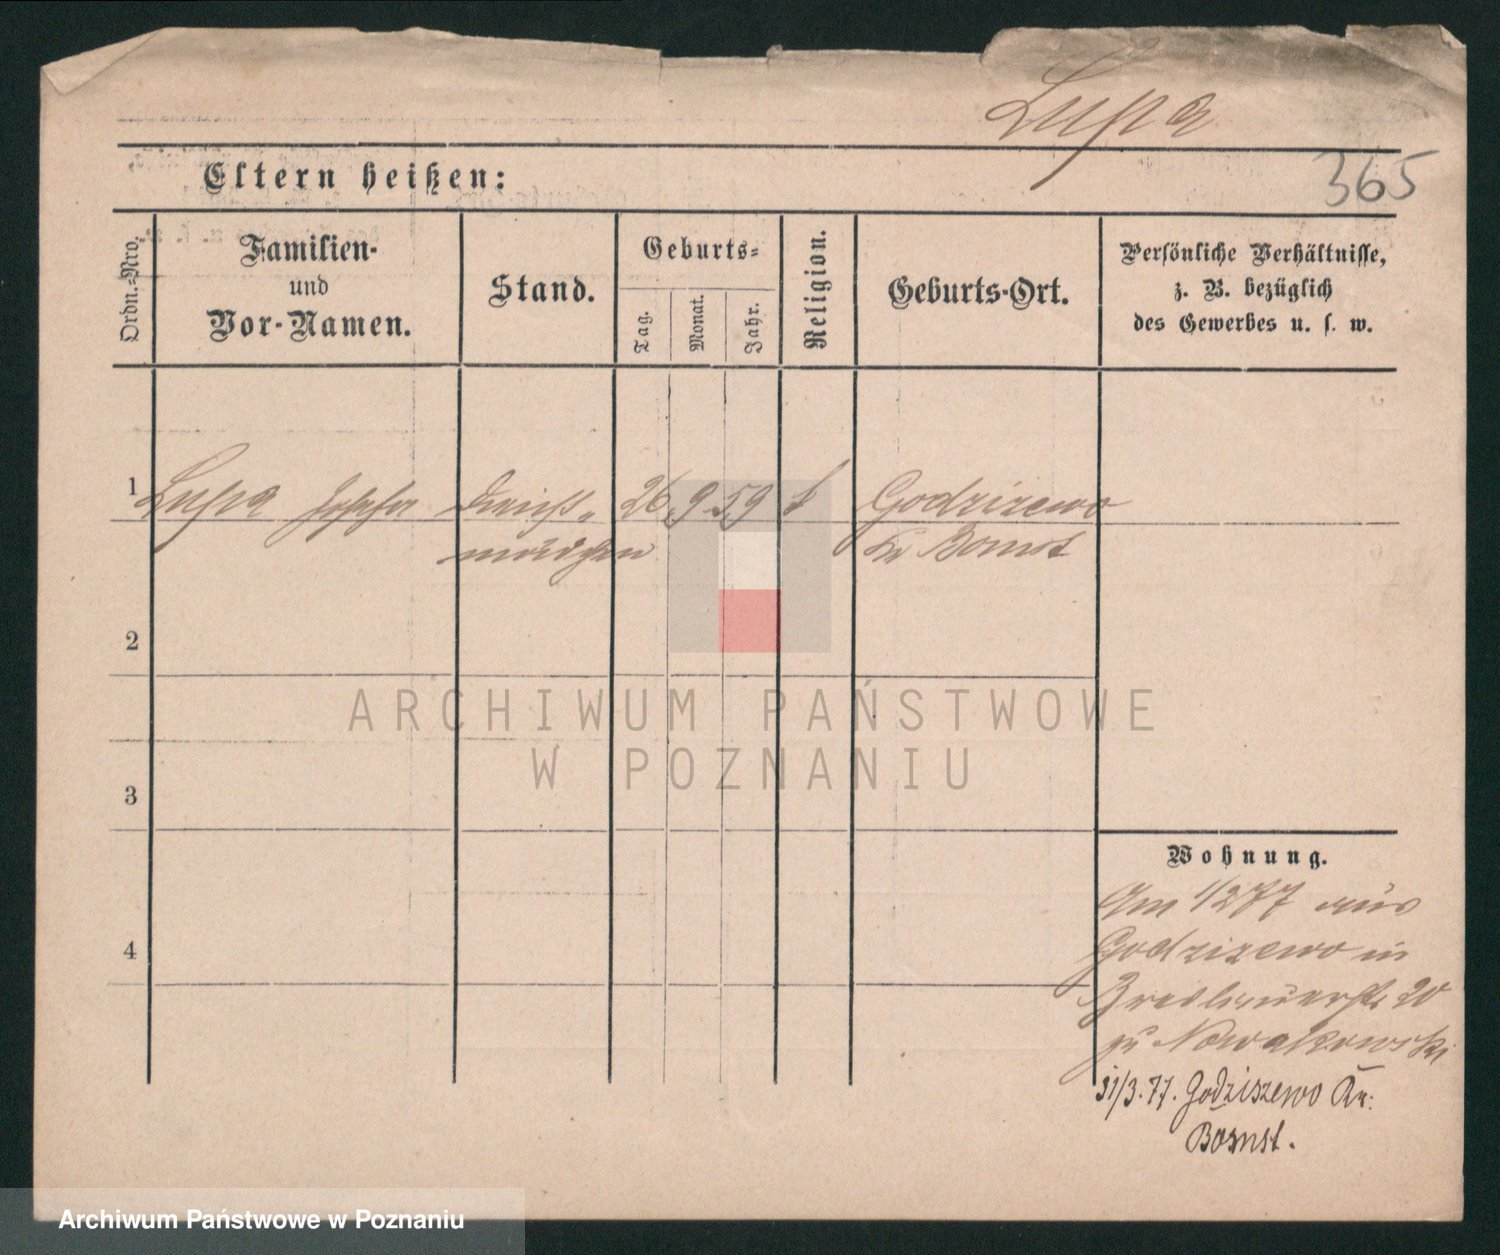 Lupa
365
Eltern heißen:
Ordn.-Nro.
Familien-
und
Vor-Namen.
Stand.
Geburts-
Tag.
Monat.
Jahr.
Religion.
Geburts-Ort.
Persönliche Verhältnisse,
z. B. bezüglich
des Gewerbes u. s. w.
1 Lupa Josefa Dienst- 26 9 59 k Godzizewo
mädchen Kr Bomst
2
3
4
Wohnung.
Am 1/2 77 aus
Godzizewo in
Breslauerstr 20
zu Nowakowski
31/3. 77. Godziszewo Kr:
Bomst.
ARCHIWUM PAŃSTWOWE
W POZNANIU
Archiwum Państwowe w Poznaniu